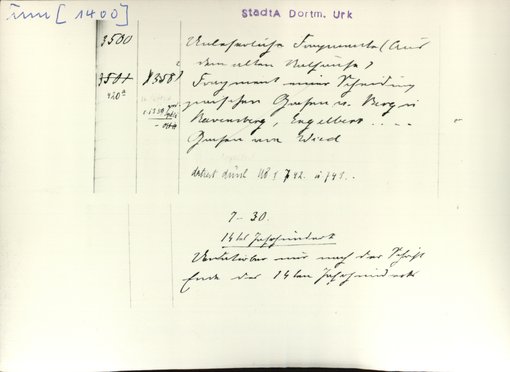 [1400]
StadtA Dortm. Urk
3500
Unleserliche Fragmente (Aus
dem alten Rathause)
3501 1358
Fragment einer Scheidung
420a
zwischen Grafen v. Berg u
Ravensberg, Engelbert ....
Grafen von Wied
datiert durch UB I 742. u 741.
7-30.
14tes Jahrhundert
Undatirbar nur nach der Schrift
Ende des 14ten Jahrhunderts